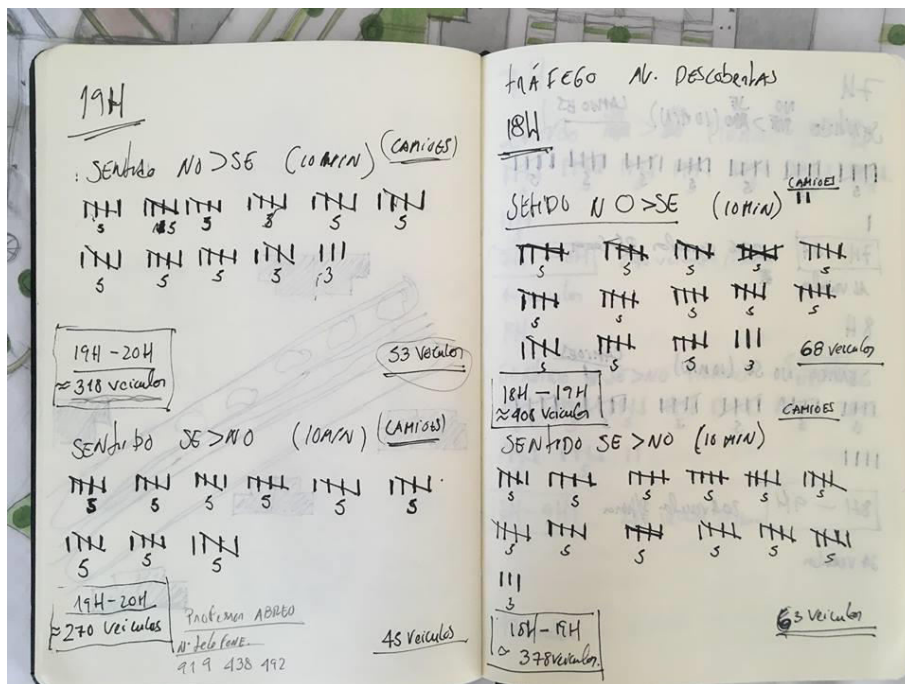 19H
SENTIDO NO>SE (10MIN) (CAMIOES)
5 5 5 5 5 5
5 5 5 5 3
53 Veiculos
19H-20H
≈ 318 veiculos
SENTIDO SE>NO (10MIN) (CAMIOES)
5 5 5 5 5 5
5 5 5
19H-20H
≈ 270 veiculos
45 Veiculos
Professor ABREO
Nº teleFONE.
919 438 492
tRÁFEGO AV. DESCOBERTAS
18H
CAMIOES
SETIDO NO>SE (10MIN)
5 5 5 5 5
5 5 5 5 5
5 5 5 3
68 veiculos
18H-19H
≈ 408 veiculos
CAMIOES
SENTIDO SE>NO (10MIN)
5 5 5 5 5 5
5 5 5 5 5 5
3
63 Veiculos
18H-19H
≈ 378 veiculos.